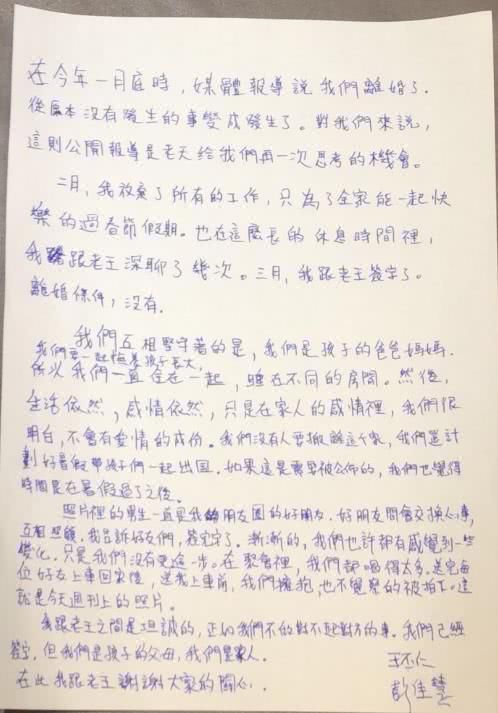 在今年一月底時，媒體報導說我們離婚了.
從原本沒有發生的事變成發生了。對我們來說，
這則公開報導是老天給我們再一次思考的機會。
二月，我放棄了所有的工作，只為了全家能一起快
樂的過春節假期。也在這麼長的休息時間裡，
我跟老王深聊了幾次。三月，我跟老王簽字了。
離婚條件，沒有.
我們互相堅守著的是，我們是孩子的爸爸媽媽.
我們要一起陪著孩子長大，
所以我們一直住在一起，睡在不同的房間。然後，
生活依然，感情依然，只是在家人的感情裡，我們很
明白，不會有愛情的成份。我們沒有人要搬離這个家，我們還計
劃好暑假帶孩子們一起出国. 如果這是需要被公佈的，我們也覺得
時間是在暑假過了之後。
照片裡的男生一直是我朋友圈的好朋友. 好朋友間會交換心事，
互相照顧. 我告訴好友們，簽完字了. 漸漸的，我們也許都有感覺到一些
變化. 只是我們沒有更進一步。在聚會裡，我們都喝得太多. 送完每
位好友上車回家後，送我上車前，我們擁抱，也不覺察的被拍了. 這
就是今天週刊上的照片。
我跟老王之間是坦誠的，我們不的對不起對方的事. 我們已經
簽字，但我們是孩子的父母，我們是家人.
王丕仁
在此我跟老王謝謝大家的關心..
彭佳慧